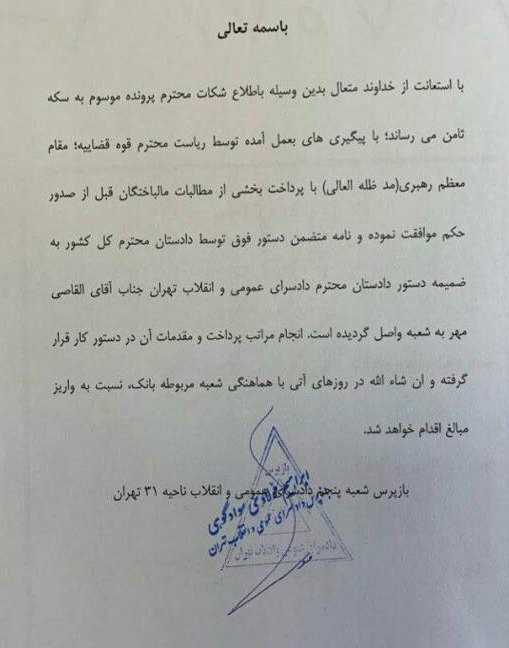 باسمه تعالی
با استعانت از خداوند متعال بدین وسیله باطلاع شکات محترم پرونده موسوم به سکه
ثامن می رساند؛ با پیگیری های بعمل آمده توسط ریاست محترم قوه قضاییه؛ مقام
معظم رهبری(مد ظله العالی) با پرداخت بخشی از مطالبات مالباختگان قبل از صدور
حکم موافقت نموده و نامه متضمن دستور فوق توسط دادستان محترم کل کشور به
ضمیمه دستور دادستان محترم دادسرای عمومی و انقلاب تهران جناب آقای القاصی
مهر به شعبه واصل گردیده است. انجام مراتب پرداخت و مقدمات آن در دستور کار قرار
گرفته و ان شاء الله در روزهای آتی با هماهنگی شعبه مربوطه بانک، نسبت به واریز
مبالغ اقدام خواهد شد.
بازپرس
بازپرس شعبه پنجم دادسرای عمومی و انقلاب ناحیه ۳۱ تهران
بازپرس دادسرای عمومی و انقلاب تهران
دادسرای عمومی و انقلاب تهران